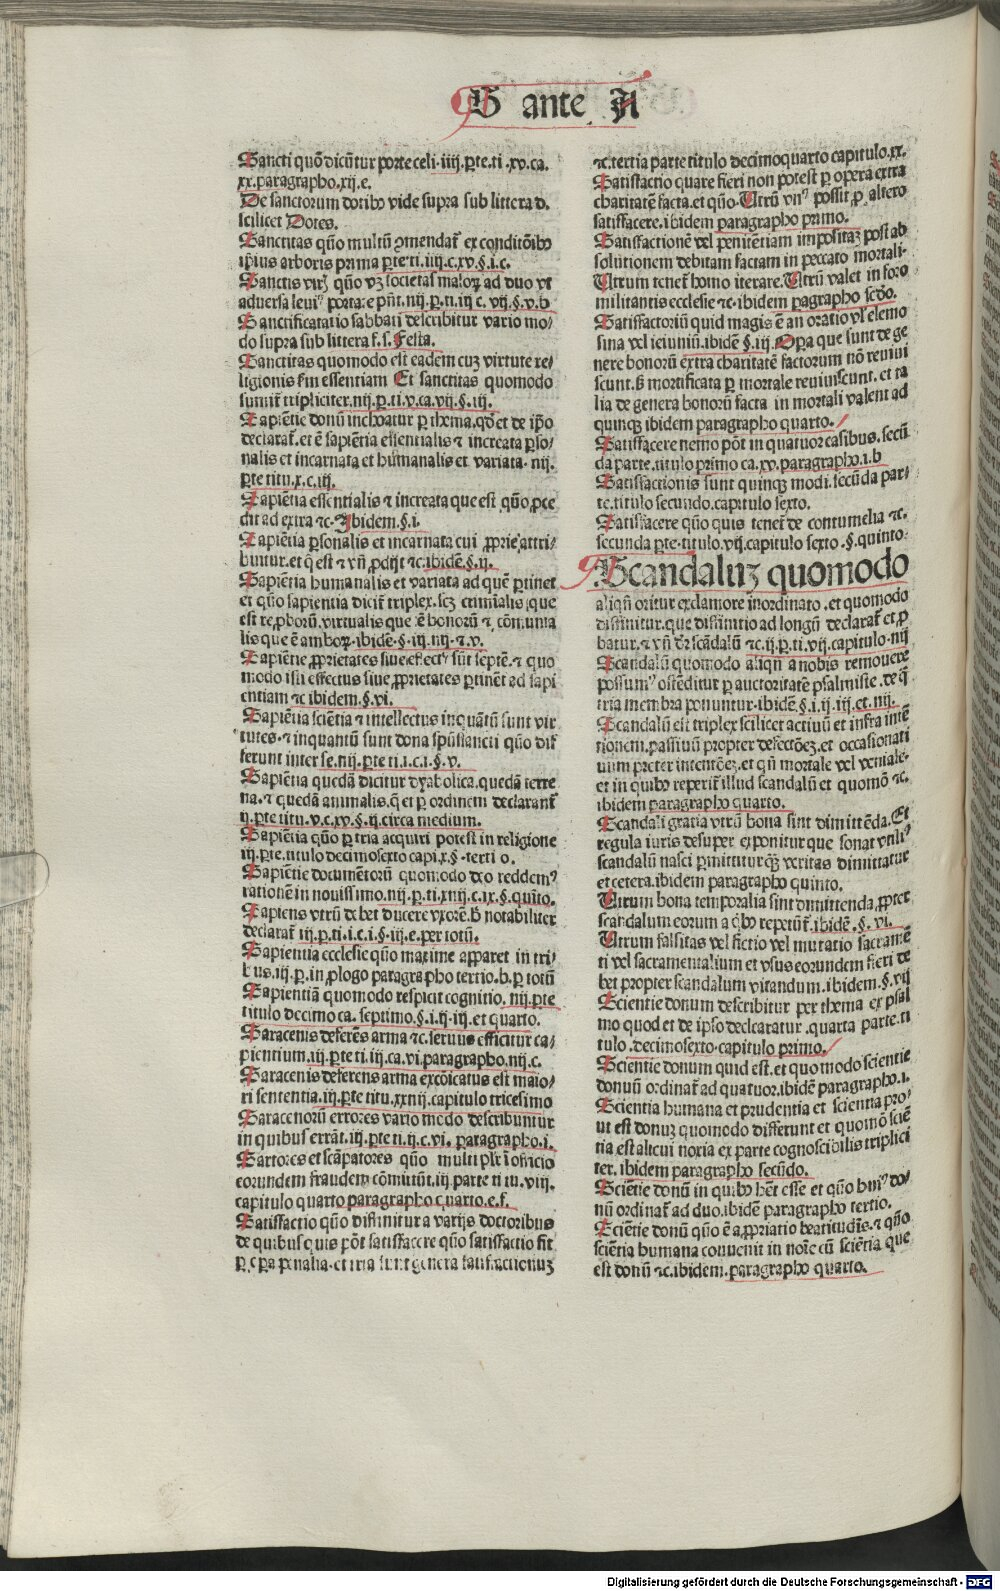 S ante A
Sancti quō dicūtur porte celi .iiij. ꝑte. ti .xv. ca.
xx. paragrapho. xij. e.
De sanctorum dotibꝰ vide supra sub littera d.
scilicet Dotes.
Sanctitas quō multū ꝯmendat̄ ex conditōibꝰ
ipsius arboris prima ꝑte ti. iiij c. xv. §. i. c.
Sanctis virꝭ quō vꝫ societas maloꝝ ad duo vt
adversa leviꝰ portare pn̄t. iiij. ꝑ. ti. iij c. vij. §. v. b
Sanctificatio sabbati describitur vario mo-
do supra sub littera f. s. Festa.
Sanctitas quomodo est eadem cuꝫ virtute re-
ligionis ẜm essentiam Et sanctitas quomodo
sumit̄ tripliciter. iiij. ꝑ. ti. v. ca. vij. §. iij.
Sapiētie donū inchoatur ꝑ thema. qđ et de ip̄o
declarat̄. et ē sapiētia essentialis ⁊ increata ꝑso-
nalis et incarnata et humanalis et variata. iiij.
ꝑte titu. x. c. iij.
Sapiētia essentialis ⁊ increata que est quō ꝓce
dit ad extra ⁊c. Ibidem. §. i.
Sapiētia ꝑsonalis et incarnata cui ꝓprie attri-
buitur. et q̄ est ⁊ vn̄ ꝓdijt ⁊c. ibidē. §. ij.
Sapiētia humanalis et variata ad quē ꝑtinet
et quō sapientia dicit̄ triplex. scꝫ crimīalis que
est reꝓborū. virtualis que ē bonorū ⁊ cōmunia
lis que ē amboꝝ. ibidē. §. iij. iiij. ⁊ v.
Sapiētie ꝓprietates sive effectꝰ sūt septē. ⁊ quo
modo isti effectus sive ꝓprietates ꝑtinēt ad sapi
entiam ⁊c ibidem. §. vi.
Sapiētia sciētia ⁊ intellectus inquātū sunt vir
tutes. ⁊ inquantū sunt dona spūssancti quō dif
ferunt inter se. iiij. ꝑte ti. i. c. i. §. v.
Sapiētia quedā dicitur dyabolica. quedā terre
na. ⁊ quedā animalis. q̄ et ꝑ ordinem declarant̄
ij. ꝑte titu. v. c. xv. §. ij. circa medium.
Sapiētia quō ꝑ tria acquiri potest in religione
iij. ꝑte. titulo decimosexto capi. x. §. tertio.
Sapiētie documētorū quomodo deo reddemꝰ
rationē in novissimo. iiij. ꝑ. ti. xiiij. c. ix. §. quīto.
Sapiens vtrū debet ducere vxorē. B notabiliter
declarat̄ iij. ꝑ. ti. i. c. i. §. iij. e. per totū.
Sapientia ecclesie quō maxime apparet in tri-
bus. iij. ꝑ. in ꝓlogo paragrapho tertio. b. ꝑ totū
Sapientiā quomodo respicit cognitio. iiij. ꝑte
titulo decimo ca. septimo. §. i. ij. iij. et quarto.
Saracenis deferēs arma ⁊c. servus efficitur ca-
pientium. iij. ꝑte ti. iij. ca. vi. paragrapho. iiij. c.
Saracenis deferens arma excōicatus est maio-
ri sententia. iij. ꝑte titu. xxiiij. capitulo tricesimo
Saracenorū errores vario modo describuntur
in quibus errāt. iij. ꝑte ti. ij. c. vi. paragrapho. i.
Sartores et scāpatores quō multiplr̄ ī officio
eorundem fraudem cōmittūt. iij parte titu. viij.
capitulo quarto paragrapho quarto. e. f.
Satisfactio quō diffinitur a varijs doctoribus
de quibus quis pōt satisfacere quō satisfactio fit
ꝑ oꝑa penalia. et tria sunt genera satisfactionuꝫ
⁊c. tertia parte titulo decimoquarto capitulo. xx.
Satisfactio quare fieri non potest ꝑ opera extra
charitatē facta. et quō. Utrū vnꝰ possit ꝓ altero
satisfacere. ibidem paragrapho primo.
Satisfactionē vel penitētiam impositaꝫ post ab
solutionem debitam factam in peccato mortali.
Utrum tenet̄ homo iterare. Utrū valet in foro
militantis ecclesie ⁊c. ibidem paragrapho scđo.
Satisfactoriū quid magis ē an oratio vl̄ elemo
sina vel ieiuniū. ibidē §. iij. Opera que sunt de ge
nere bonorū extra charitatē factorum nō revivi
scunt. B mortificata ꝑ mortale reviviscunt. et ta
lia de genera bonorū facta in mortali valent ad
quinqꝫ ibidem paragrapho quarto.
Satisfacere nemo pōt in quatuor casibus. secū
da parte. titulo primo ca. xv. paragrapho. i. b
Satisfactionis sunt quinqꝫ modi. secūda par-
te. titulo secundo. capitulo sexto.
Satisfacere quō quis tenet̄ de contumelia ⁊c.
secunda ꝑte. titulo. vij. capitulo sexto. §. quinto.
Scandaluꝫ quomodo
aliqn̄ oritur ex clamore inordinato. et quomodo
diffinitur. que diffinitio ad longū declarat̄ et ꝓ
batur. ⁊ vn̄ dr̄ scādalū ⁊c. ij. ꝑ. ti. vij. capitulo. iiij
Scandalū quomodo aliqn̄ a nobis removere
possumꝰ ostēditur ꝑ auctoritatē psalmiste. de q̄
tria membra ponuntur. ibidē. §. i. ij. iij. et. iiij.
Scandalū est triplex scilicet activū et infra intē
tionem. passivū propter defectōeꝫ. et occasionati
vum preter intentōeꝫ. et qn̄ mortale vel veniale.
et in quibꝰ reperit̄ illud scandalū et quomō ⁊c.
ibidem paragrapho quarto.
Scandali gratia vtrū bona sint dimittēda. Et
regula iuris desuper exponitur que sonat vtiliꝰ
scandalū nasci ꝑmittitur qꝫ veritas dimittatur
et cetera. ibidem paragrapho quinto.
Utrum bona temporalia sint dimittenda. ꝓpter
scandalum eorum a qͥbꝰ repetūt̄. ibidē. §. vi.
Utrum falsitas vel fictio vel mutatio sacramē
ti vel sacramentalium et vsus eorundem fieri de
bet propter scandalum vitandum. ibidem. §. vij
Scientie donum describitur per thema ex psal
mo quod et de ipso declcaratur. quarta parte. ti
tulo. decimosexto. capitulo primo.
Scientie donum quid est. et quomodo scientie
donuū ordinat̄ ad quatuor. ibidē paragrapho. i.
Scientia humana et prudentia et scientia pro-
ut est donuꝫ quomodo differunt et quomō sciē
tia est alicui noria ex parte cognoscibilis triplici
ter. ibidem paragrapho secūdo.
Sciētie donū in quibꝰ hēt esse et quō hmōi do-
nū ordinat̄ ad duo. ibidē paragrapho tertio.
Sciētie donū quō ē appriatio beatitudīs. ⁊ quō
sciētia humana convenit in noīe cū sciētia que
est donū ⁊c. ibidem. paragrapho quarto.
Digitalisierung gefördert durch die Deutsche Forschungsgemeinschaft - DFG